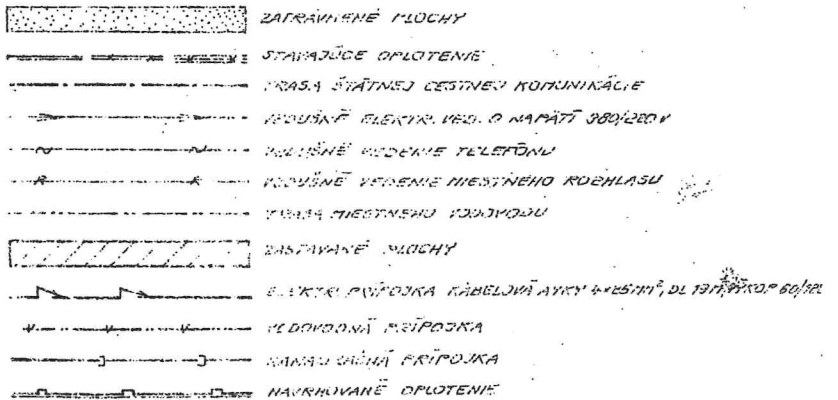 ZATRÁVNENÉ PLOCHY
STÁVAJÚCE OPLOTENIE
TRASA ŠTÁTNEJ CESTNEJ KOMUNIKÁCIE
VZDUŠNÉ ELEKTR. VED. O NAPÄTÍ 380/220 V
VZDUŠNÉ VEDENIE TELEFÓNU
VZDUŠNÉ VEDENIE MIESTNEHO ROZHLASU
TRASA MIESTNEHO VODOVODU
ZASTAVANÉ PLOCHY
ELEKTR. PRÍPOJKA KÁBELOVÁ AYKY 4×25MM², DL 19M, VÝKOP 60/120
VODOVODNÁ PRÍPOJKA
KANALIZAČNÁ PRÍPOJKA
NAVRHOVANÉ OPLOTENIE